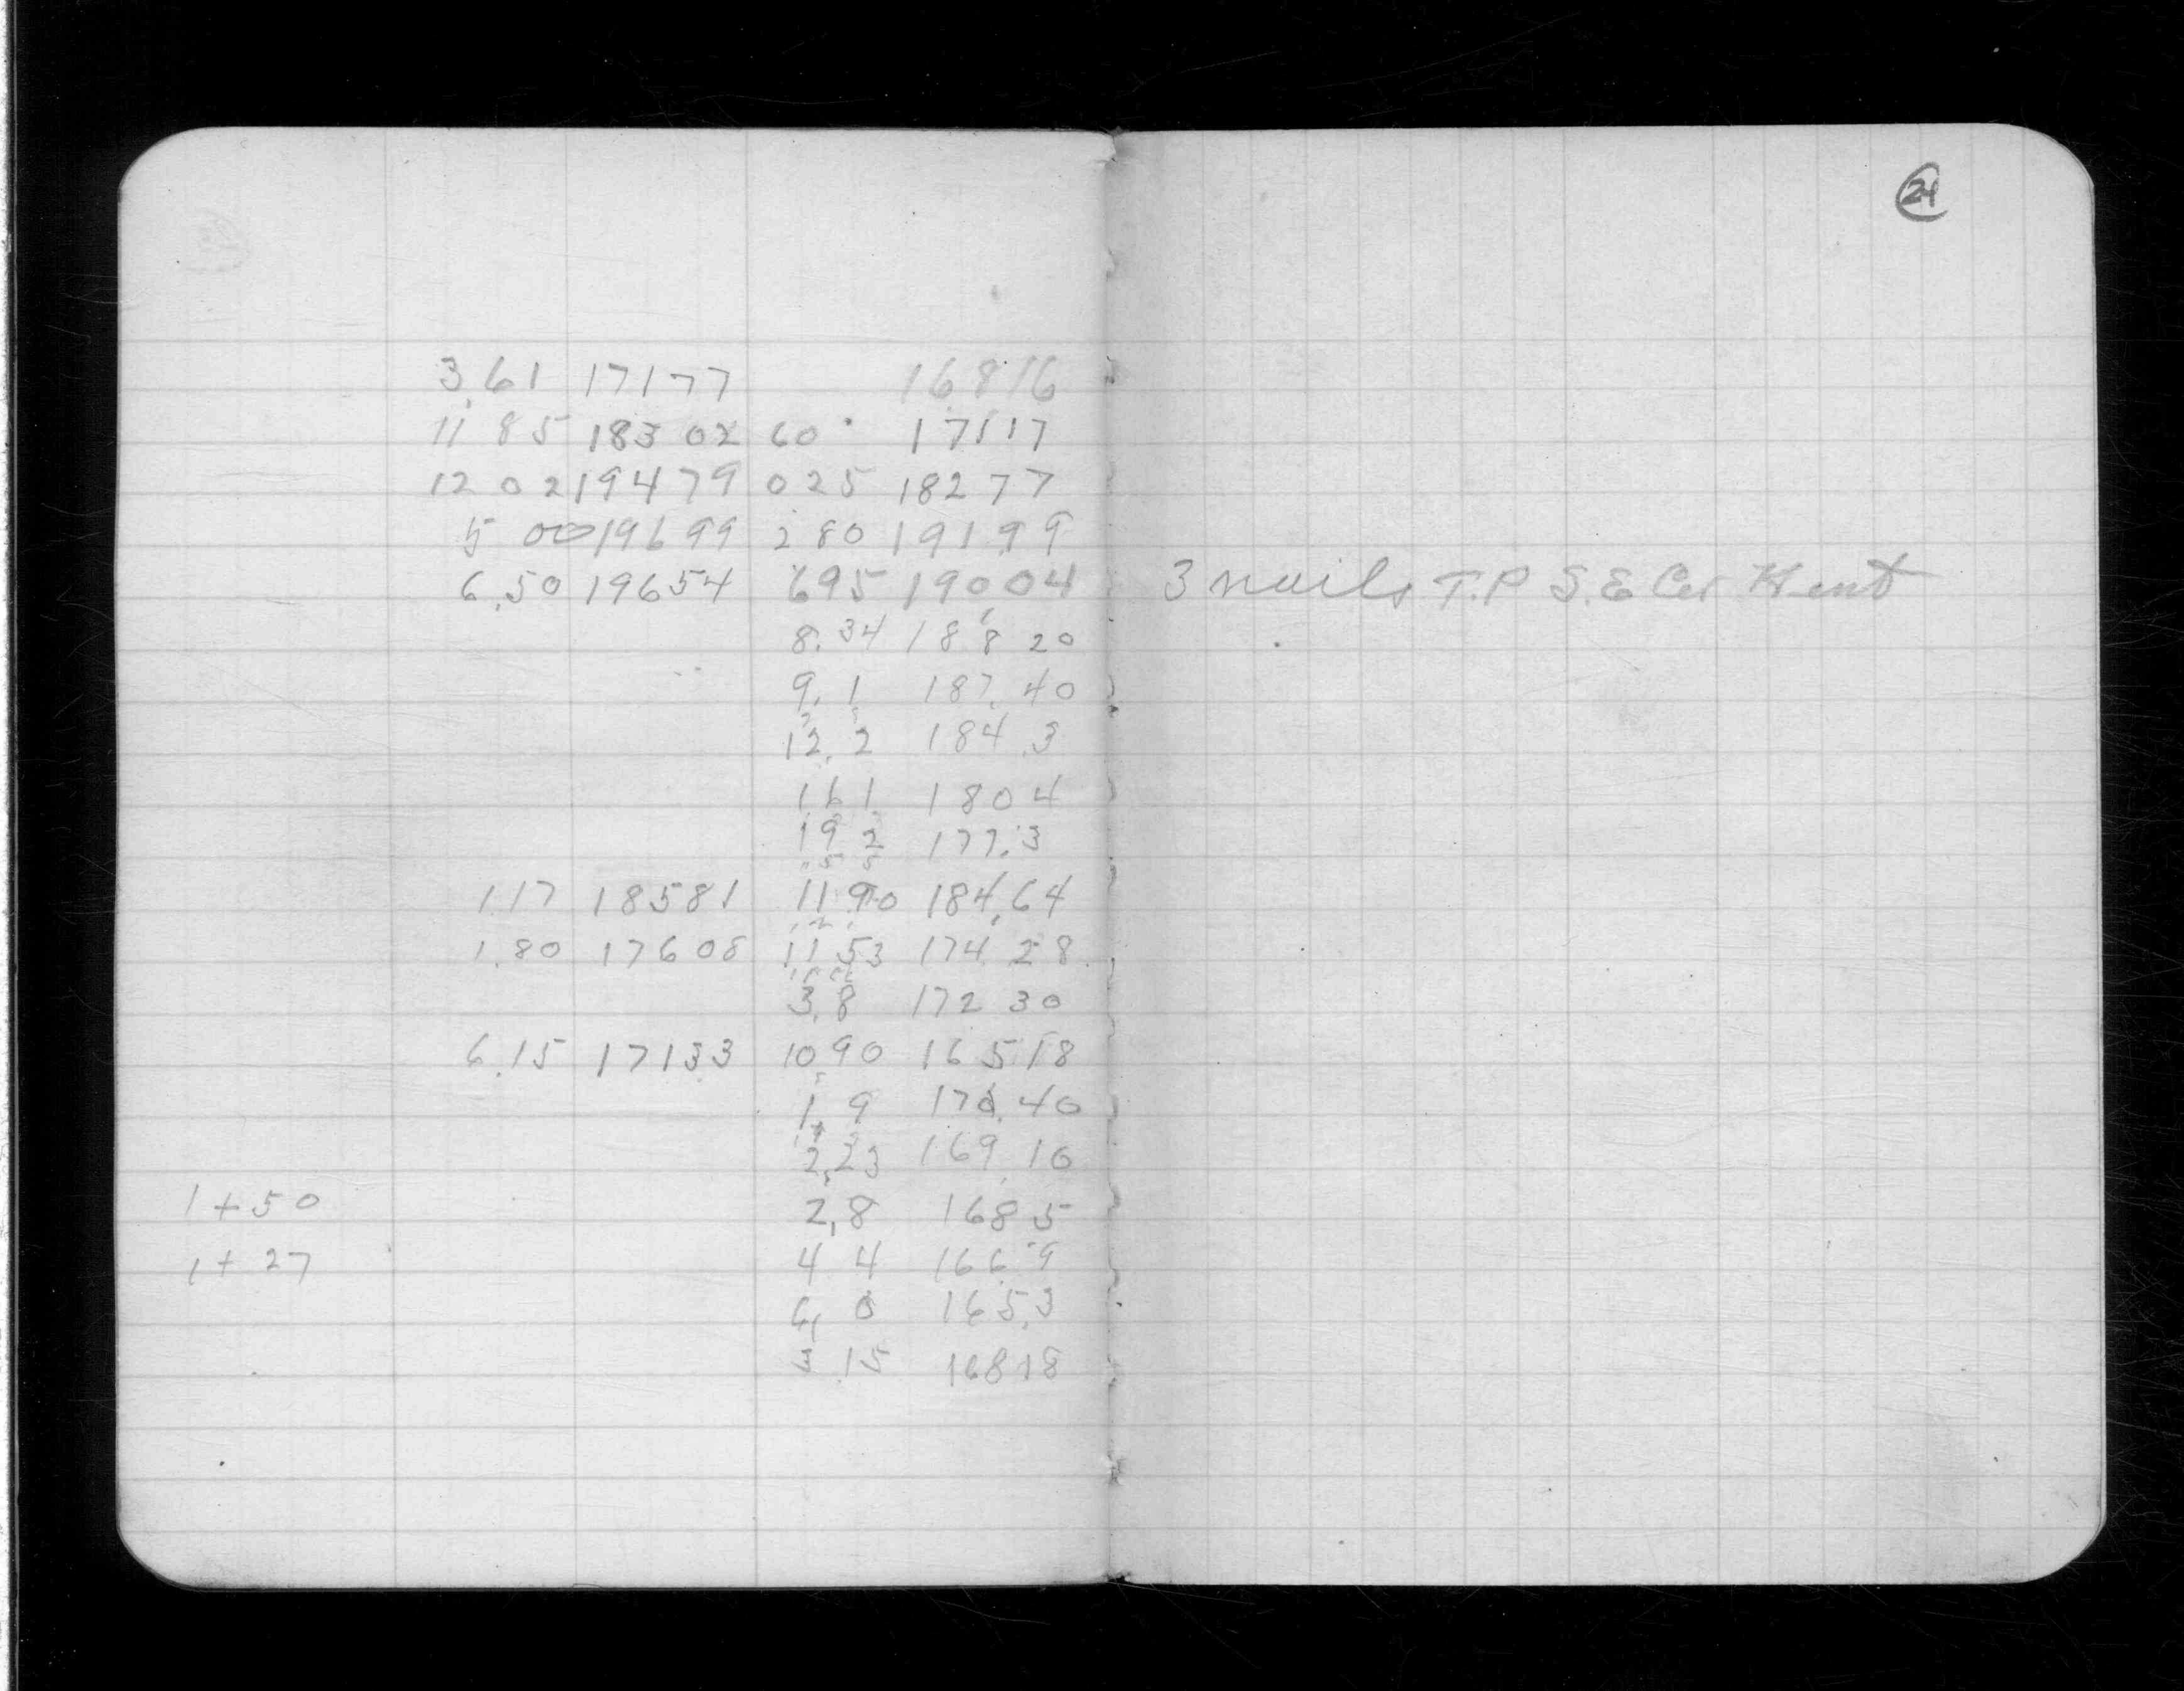 24
3.61 17177 16816
11 85 183 02 60 17117
12 02 19479 025 18277
5 00 19699 280 19199
6.50 19654 695 19004 3 nails T.P S.E Cor Kent
8.34 188 20
9.1 187.40
12.2 184.3
161 1804
19 2 177.3
117 18581 11 90 184.64
1.80 17608 11 53 174 28
3.8 172 30
6.15 17133 1090 165 18
1 9 170.40
2.23 169 10
1+50 2,8 168 5
1+27 4 4 166 9
6, 0 165.3
3 15 168 18